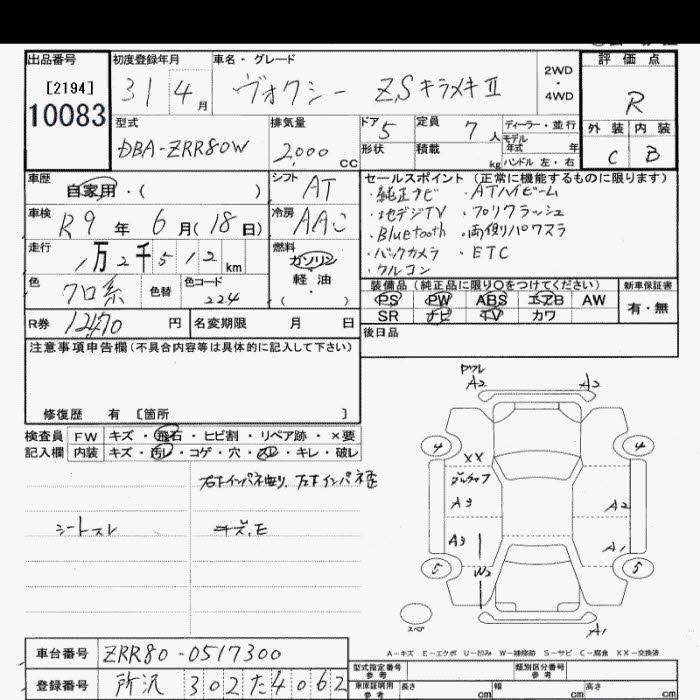 出品番号
[2194]
10083
初度登録年月
31 4 月
車名・グレード
ヴォクシー ZSキラメキⅡ
2WD
・
4WD
評価点
R
外装 内装
C B
型式
DBA-ZRR80W
排気量
2,000 cc
ドア 5
定員 7 人
ディーラー・並行
モデル年式 年
形状
積載 kg
ハンドル 左・右
車歴
自家用・( )
シフト AT
車検
R9 年 6 月 (18 日)
冷房 AAC
走行
1万2千512 km
燃料
ガソリン
軽・油
( )
色
クロ系
色替
色コード
224
R券 12470 円
名変期限 月 日
セールスポイント (正常に機能するものに限ります)
・純正ナビ ・ATハイビーム
・地デジTV ・プリクラッシュ
・Bluetooth ・両側パワスラ
・バックカメラ ・ETC
・クルコン
装備品 (純正品に限り○をつけてください)
PS PW ABS エアB AW
SR ナビ TV カワ
新車保証書
有・無
後日品
注意事項申告欄(不具合内容等は具体的に記入して下さい)
修復歴 有 [箇所 ]
検査員
記入欄
FW キズ・飛石・ヒビ割・リペア跡・×要
内装 キズ・汚レ・コゲ・穴・スレ・キレ・破レ
シートスレ
キズ,E
A2 A2
4 4
XX
A3 A2
A3 A1
W2
5 5
スペア
A1
A-キズ E-エクボ U-凹み W-補修跡 S-サビ C-腐食 XX-交換済
車台番号 ZRR80-0517300
登録番号 所沢 302 た 4062
型式指定番号
参考
類別区分番号
参考
車庫証明用
参考
長さ cm 幅 cm 高さ cm